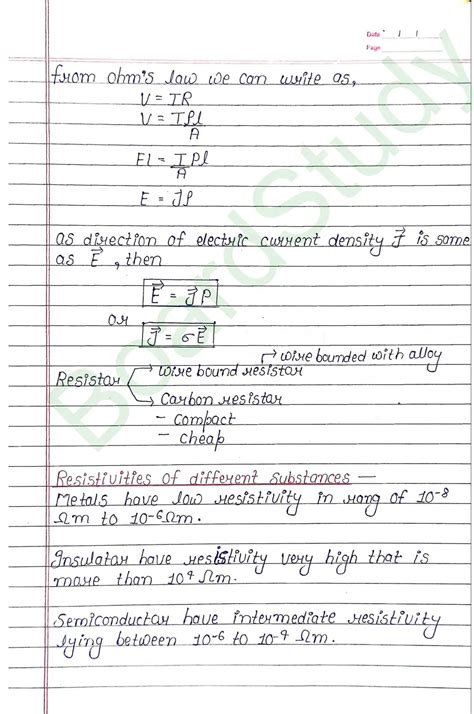 Date / /
Page
from ohm's law we can write as,
V = IR
V = Iρl
A
El = I ρl
A
E = Jρ
as direction of electric current density J⃗ is same
as E⃗ , then
E⃗ = J⃗ρ
or
J⃗ = σE⃗
wire bounded with alloy
Resistor wire bound resistor
Carbon resistor
- compact
- cheap
Resistivities of different substances —
Metals have low resistivity in rang of 10⁻⁸
Ωm to 10⁻⁶Ωm.
Insulator have resistivity very high that is
more than 10⁴ Ωm.
Semiconductor have intermediate resistivity
lying between 10⁻⁶ to 10⁻⁴ Ωm.
BoardStudy